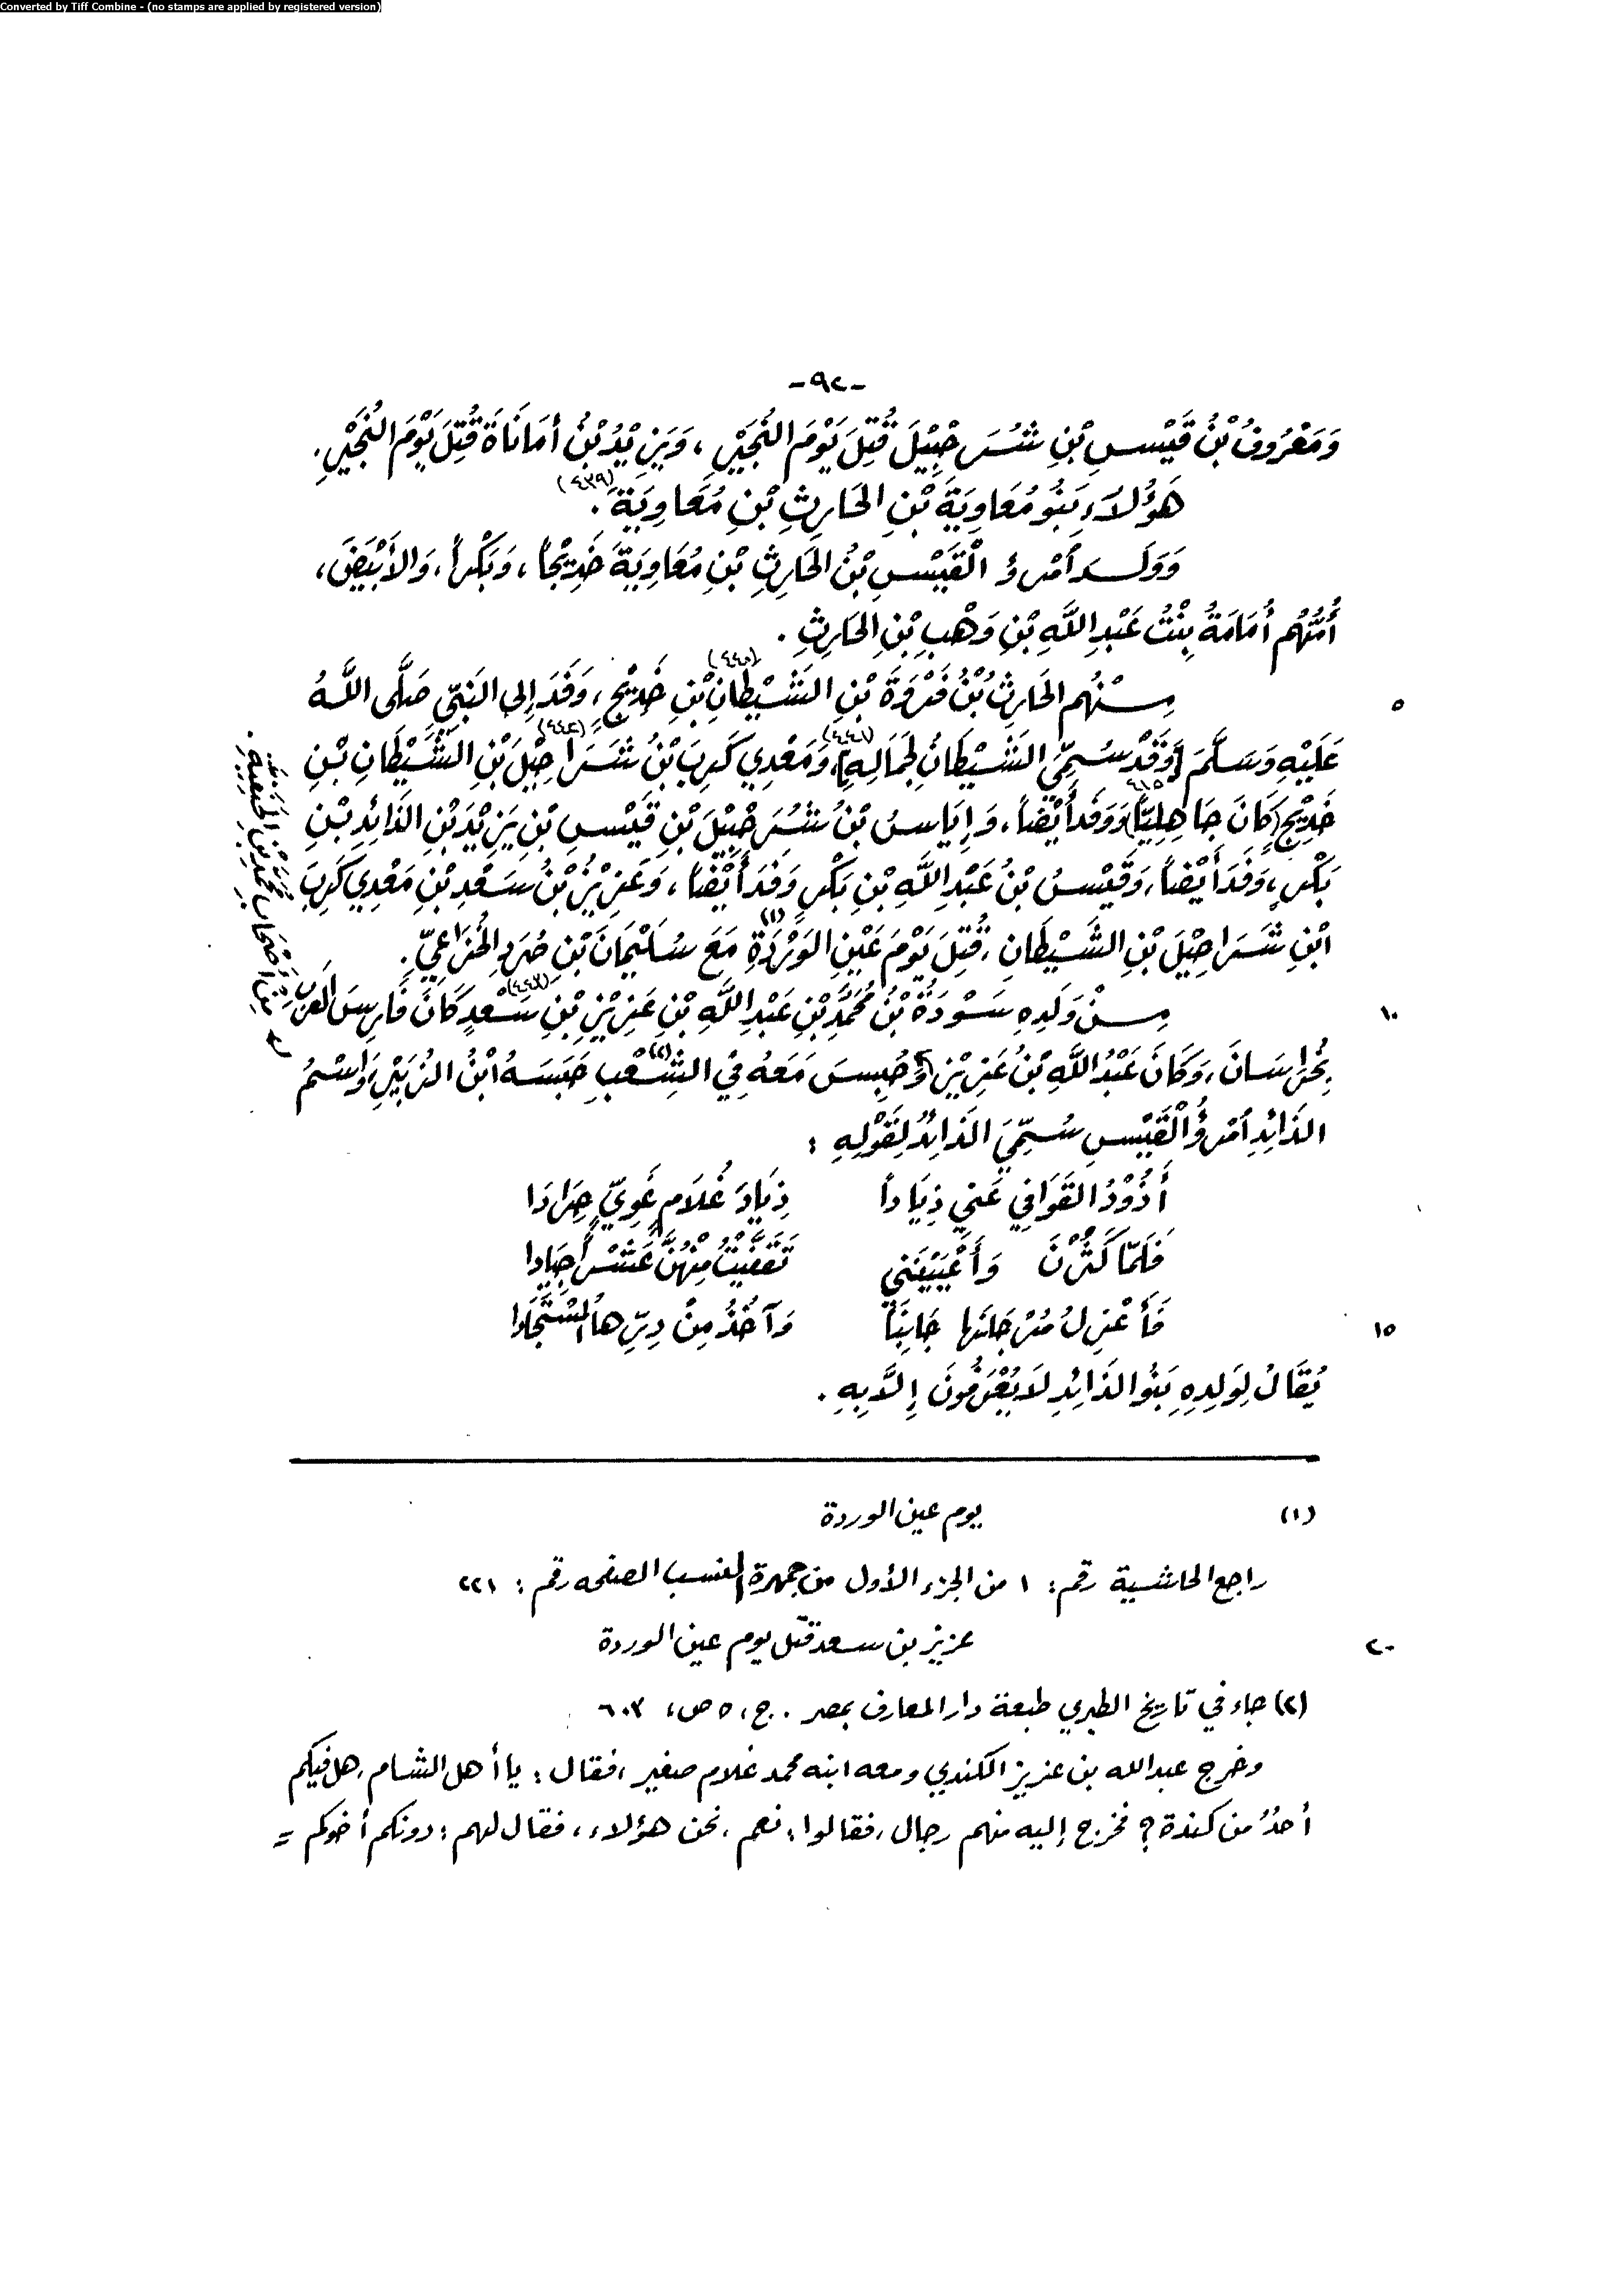 Converted by Tiff Combine - (no stamps are applied by registered version)
-٩٢-
وَمَعْرُوفُ بْنُ قَيْسِ بْنِ شُرَحْبِيْلَ قُتِلَ يَوْمَ النُّجَيْرِ، وَيَزِيْدُ بْنُ أَمَانَاةَ قُتِلَ يَوْمَ النُّجَيْرِ.
هَؤُلاَءِ بَنُو مُعَاوِيَةَ بْنِ الحَارِثِ بْنِ مُعَاوِيَةَ. (٤٣٩)
وَوَلَدَ أمْرؤُ القَيْسِ بْنُ الحَارِثِ بْنِ مُعَاوِيَةَ خَدِيْجاً، وَبَكْراً، وَالأَبْيَضَ،
أُمُّهُم أُمَامَةُ بِنْتُ عَبْدِ اللَّهِ بْنِ وَهْبِ بْنِ الحَارِثِ.
مِنْهُم الحَارِثُ بْنُ فَرْوَةَ بْنِ الشَّيْطَانِ (٤٤٠) بْنِ خَدِيْجٍ، وَفَدَ إِلى النَبِيِّ صَلَّى اللَّهُ
٥
عَلَيْهِ وَسَلَّمَ [وَقَدْ سُمِّيَ الشَّيْطَانُ لِجَمَالِهِ] (٤٤١)، وَمَعْدِي كَرِبَ بْنُ شَرَاحِيْلَ (٤٤٢) بْنِ الشَّيْطَانِ بْنِ
خَدِيْجٍ (كَانَ جَاهِلِيّاً) وَوَفَدَ أَيْضاً، وَإِيَاسُ بْنُ شُرَحْبِيْلَ بْنِ قَيْسِ بْنِ يَزِيْدَ بْنِ الذَائِدِ بْنِ
بَكْرٍ، وَفَدَ أَيْضاً، وَقَيْسُ بْنُ عَبْدِ اللَّهِ بْنِ بَكْرٍ وَفَدَ أَيْضاً، وَعَزِيْزُ بْنُ سَعْدِ بْنِ مَعْدِي كَرِبَ
ابْنِ شَرَاحِيْلَ بْنِ الشَّيْطَانِ، قُتِلَ يَوْمَ عَيْنِ الوَرْدَةِ (١) مَعَ سُلَيْمَانَ بْنِ صُرَدٍ الخُزَاعِيِّ.
مِنْ وَلَدِهِ سَوْدَةُ بْنُ مُحَمَّدِ بْنِ عَبْدِ اللَّهِ بْنِ عَزِيْزِ بْنِ سَعْدٍ (٤٤٣) كَانَ فَارِسَ العَرَبِ
١٠
بِخُرَاسَانَ، وَكَانَ عَبْدُ اللَّهِ بْنُ عَزِيْزٍ (٢) وَحُبِسَ مَعَهُ فِي الشِّعْبِ حَبَسَهُ ابْنُ الزُبَيْرِ، وَاسْمُ
مِنْ أَصْحَابِ مُحَمَّدِ بْنِ الحَنَفِيَّةِ.
الذَائِدِ أمْرؤُ القَيْسِ سُمِّيَ الذَائِدُ لِقَوْلِهِ :
أَذُوْدُ القَوَافِي عَنِي ذِيَاداً ذِيَادَ غُلاَمٍ غَوِيٍّ جِرَادَا
فَلَمّا كَثُرْنَ وَأَعْيَيْنَنِي تَنَقَّيْتُ مِنْهُنَّ عَشْراً جِيَادا
فَأَعْزِلُ مُرْجَانَها جَانِبَاً وَآخُذُ مِنْ دِرِّها المُسْتَجَادا
١٥
يُقَالُ لِوَلِدِهِ بَنُو الذَائِدِ لاَ يُعْرَفُونَ إِلاَّ بِهِ.
(١) يوم عين الوردة
راجع الحاشية رقم: ١ من الجزء الأول من جمهرة النسب الصفحه رقم: ٢٢١
عزيز بن سعد قتل يوم عين الوردة
٢٠
(٢) جاء في تاريخ الطبري طبعة دار المعارف بمصر. ج، ٥ ص، ٦٠٣
وخرج عبدالله بن عزيز الكندي ومعه ابنه محمد غلام صغير، فقال: يا أهل الشام، هل فيكم
أحدُ من كندة؟ فخرج إليه منهم رجال، فقالوا: نعم، نحن هؤلاء، فقال لهم: دونكم أخوكم =